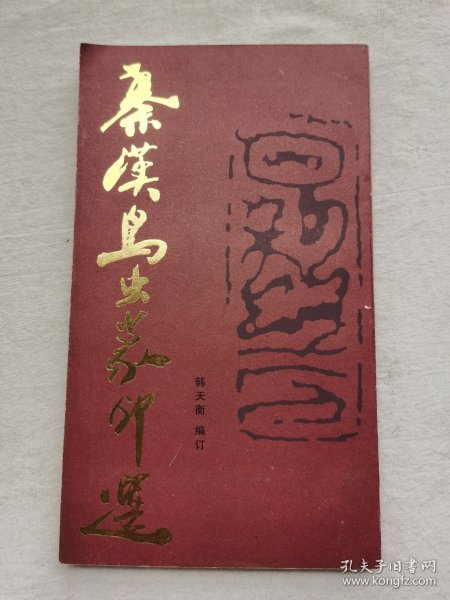 秦漢鳥虫篆印選
韩天衡 编订
孔夫子旧书网
www.kongfz.com